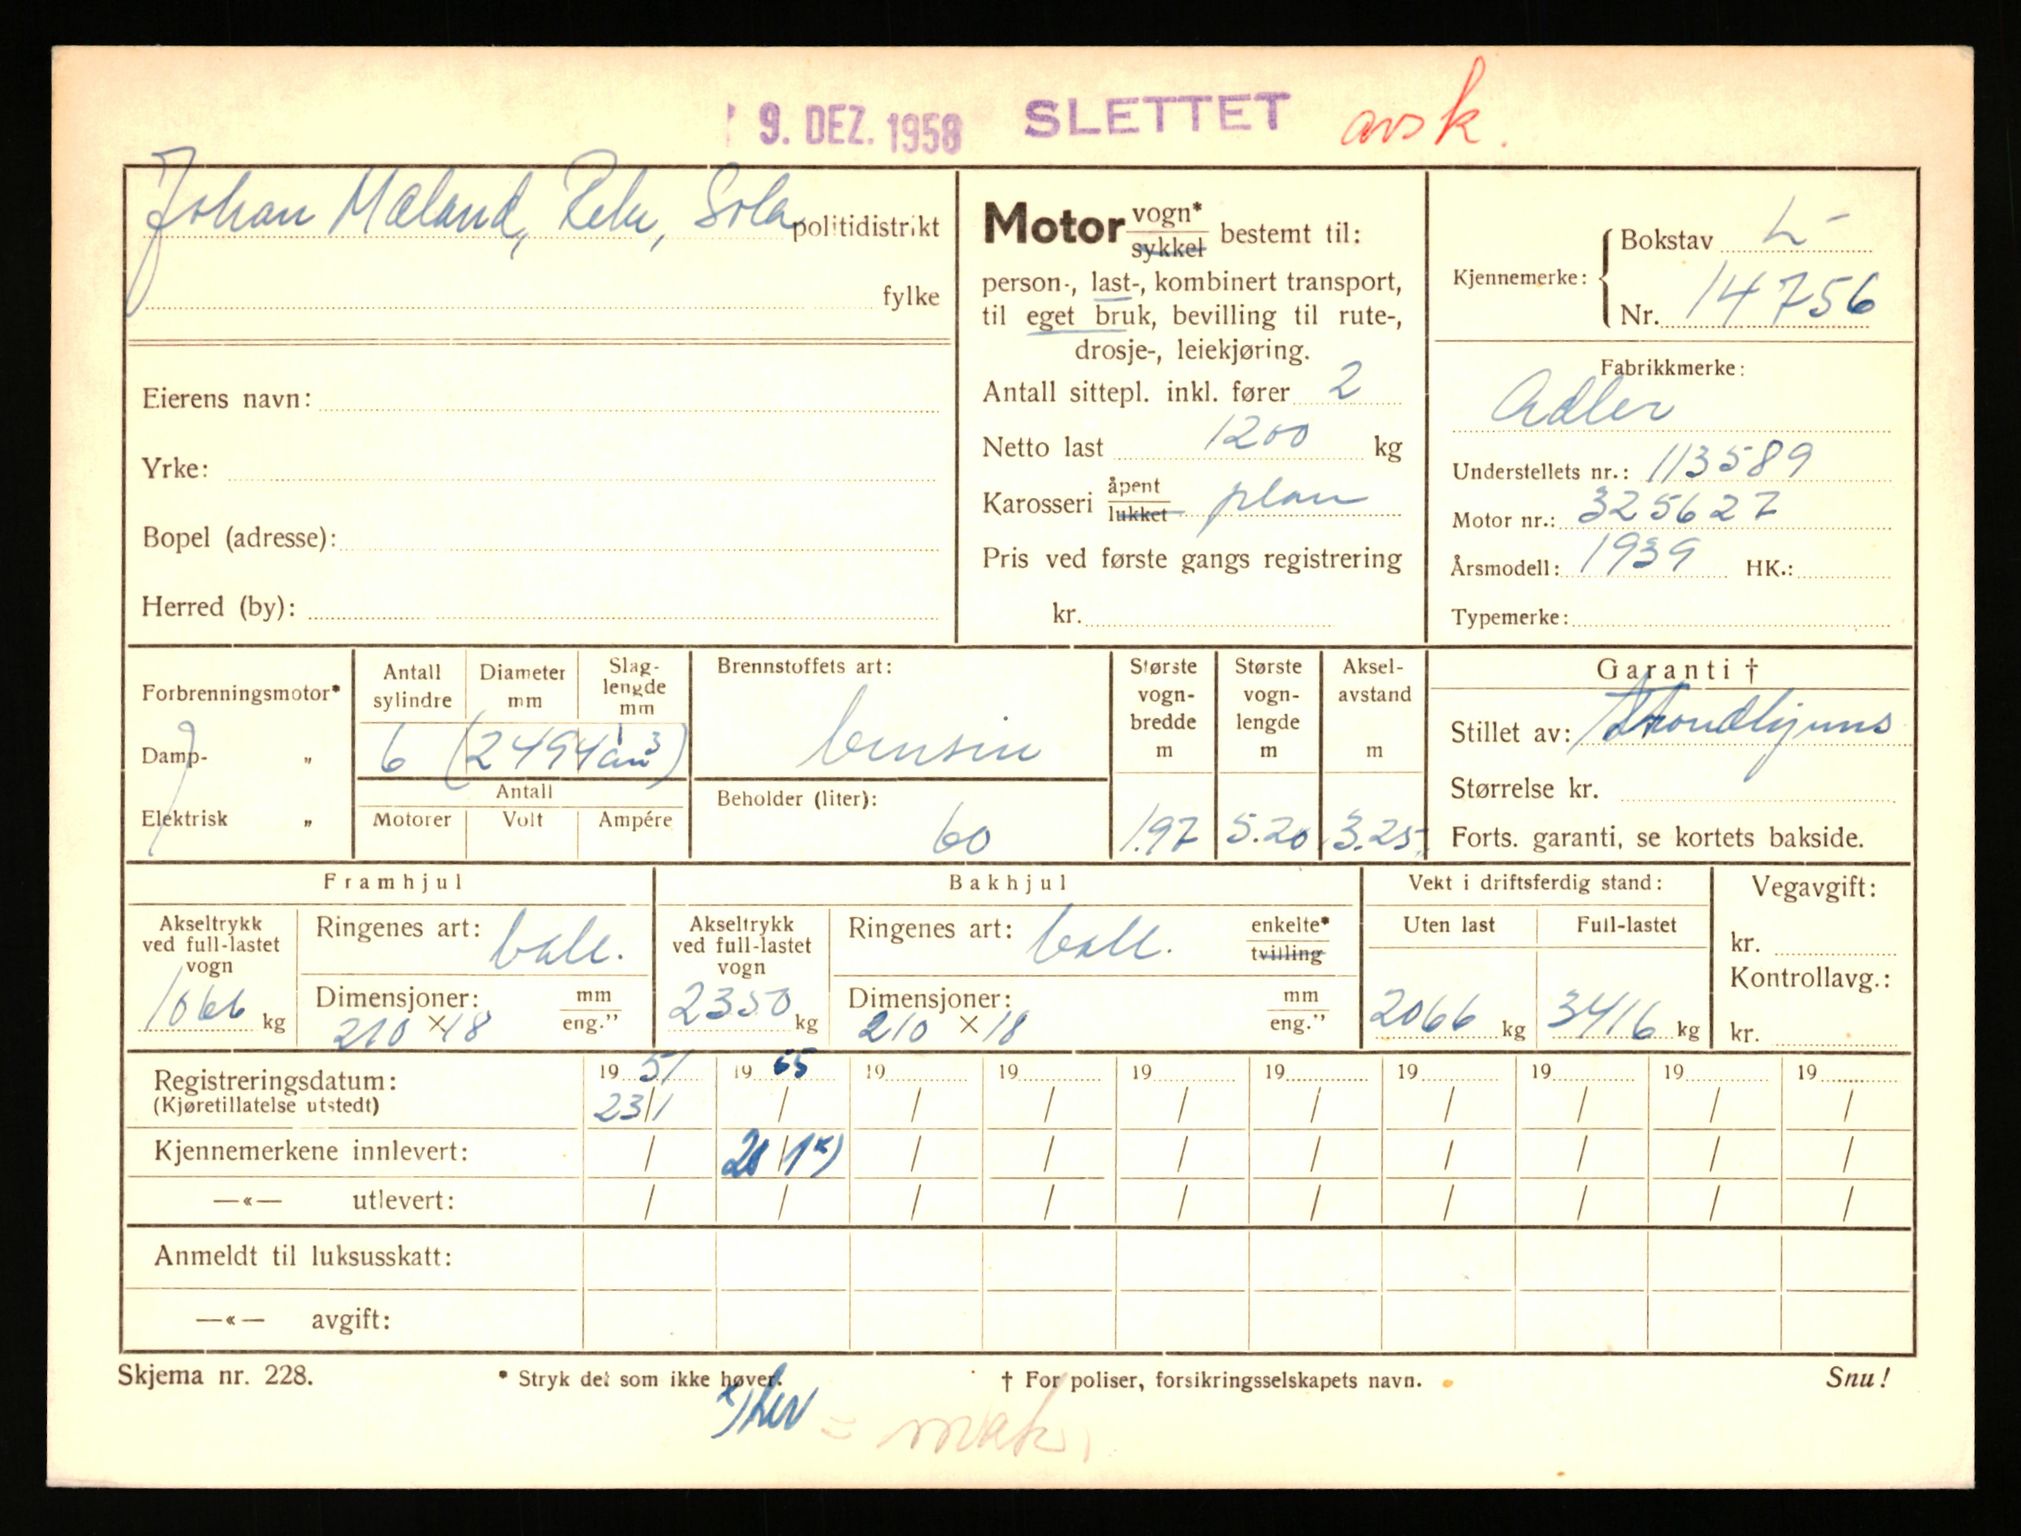 9. DEZ. 1958 SLETTET avsk.
Johan Mæland, Reke, Sola politidistrikt
fylke
Eierens navn:
Yrke:
Bopel (adresse):
Herred (by):
Motor vogn* sykkel bestemt til:
person-, last-, kombinert transport,
til eget bruk, bevilling til rute-,
drosje-, leiekjøring.
Antall sittepl. inkl. fører 2
Netto last 1200 kg
Karosseri åpent lukket plan
Pris ved første gangs registrering
kr.
Kjennemerke: Bokstav L-
Nr. 14756
Fabrikkmerke:
Adler
Understellets nr.: 113589
Motor nr.: 325627
Årsmodell: 1939 HK.:
Typemerke:
Forbrenningsmotor*
Damp- „
Elektrisk „
Antall sylindre
Diameter mm
Slag-lengde mm
6 (2494 cm³)
Antall
Motorer Volt Ampére
Brennstoffets art:
bensin
Beholder (liter):
60
Største vogn-bredde m
1.97
Største vogn-lengde m
5.20
Aksel-avstand m
3.25
Garanti †
Stillet av: Trondhjems
Størrelse kr.
Forts. garanti, se kortets bakside.
Framhjul
Akseltrykk ved full-lastet vogn
1066 kg
Ringenes art: ball.
Dimensjoner: mm eng.”
210 × 18
Bakhjul
Akseltrykk ved full-lastet vogn
2350 kg
Ringenes art: ball. enkelte* tvilling
Dimensjoner: mm eng.”
210 × 18
Vekt i driftsferdig stand:
Uten last Full-lastet
2066 kg 3416 kg
Vegavgift:
kr.
Kontrollavg.:
kr.
Registreringsdatum: 19 51 19 55 19 19 19 19 19 19 19 19
(Kjøretillatelse utstedt) 23/1 / / / / / / / / /
Kjennemerkene innlevert: / 20/1 x) / / / / / / / /
—«— utlevert: / / / / / / / / / /
Anmeldt til luksusskatt:
—«— avgift:
Skjema nr. 228. * Stryk det som ikke høver. † For poliser, forsikringsselskapets navn. Snu!
x)
= mak.